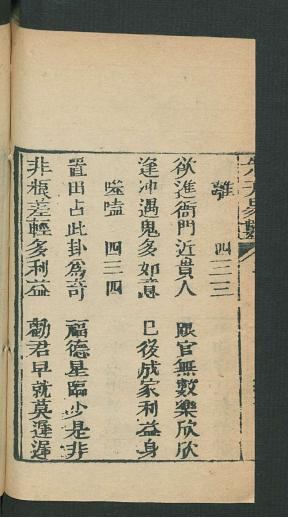 先天易數
離 四三三
欲進衙門近貴人 跟官無數樂欣欣
逢冲遇鬼多如意 已後成家利益身
噬嗑 四三四
置田占此卦爲奇 福德星臨少是非
非粮差輕多利益 勸君早就莫遲遲